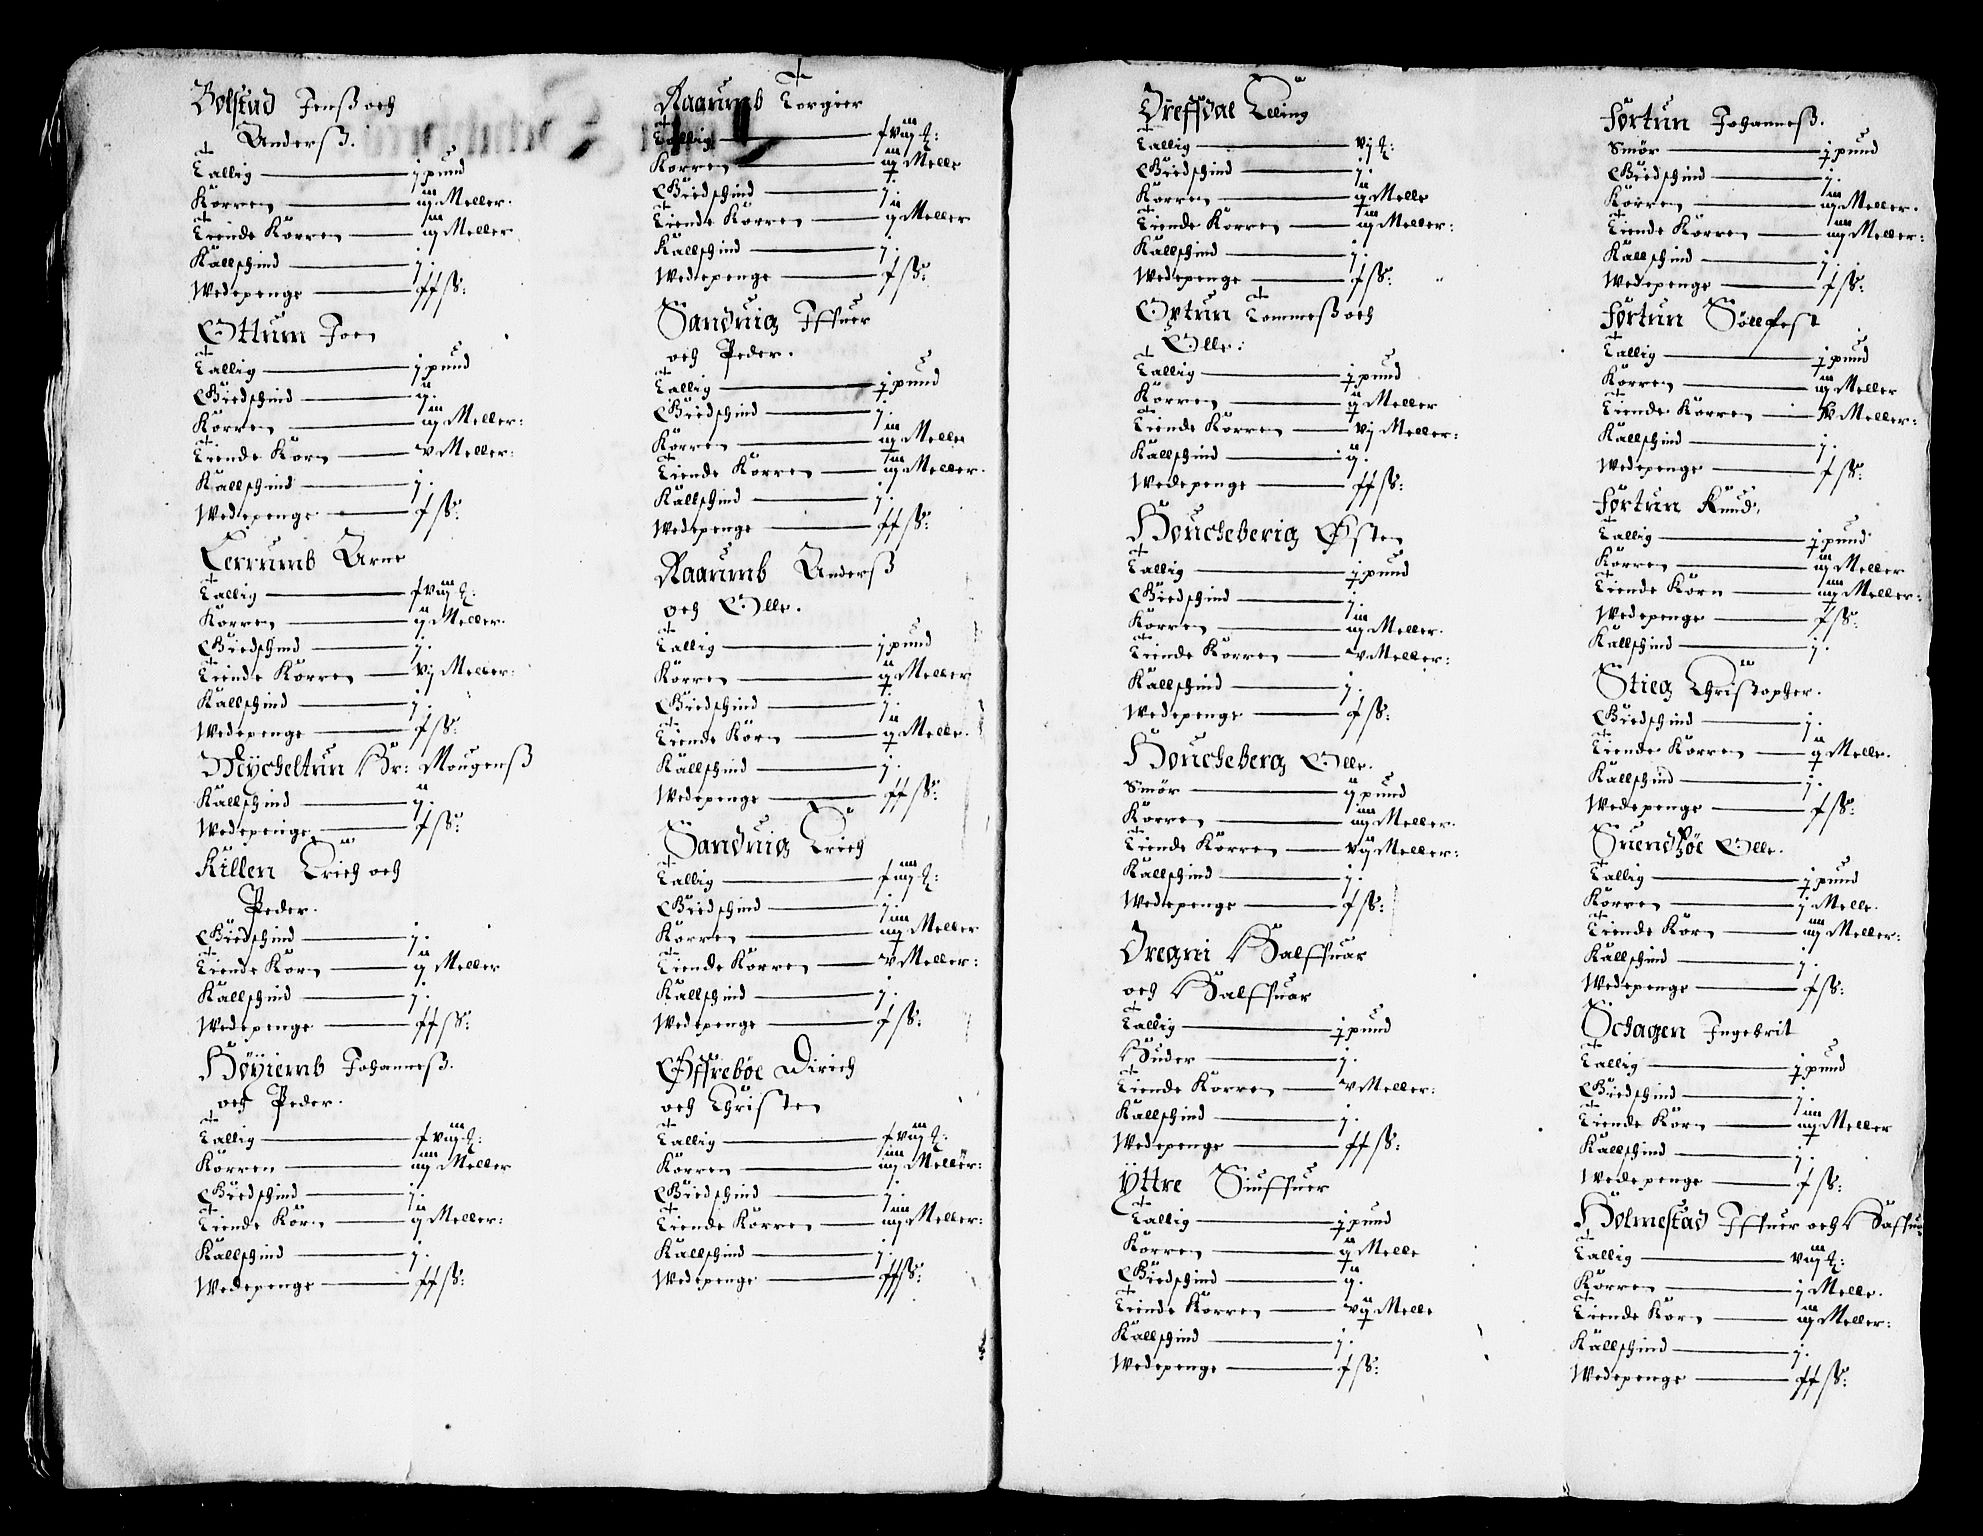 Bolstad Jenß och
Anderß.
Tallig — j pund
Korren — iij Meller.
Tiende Korren — iij Meller
Kallschind — j.
Wedepenge — ff ß:
Ottum Joen
Tallig — j pund
Giedschind — ij.
Korren — iij Meller:
Tiende Korn — v Meller:
Kallschind — j.
Wedepenge — f ß:
Lerrumb Arne
Tallig — f viij
Korren — ij Meller.
Giedschind — j.
Tiende Korren — vj Meller:
Kallschind — j.
Wedepenge — f ß:
Mycheltun Hr: Mougenß
Kallschind — ij.
Wedepenge — f ß:
Killen Erich och
Peder.
Giedschind — j.
Tiende Korn — ij Meller
Kallschind — j.
Wedepenge — ff ß:
Høyiemb Johanneß.
och Peder.
Tallig — f viij
Korren — iiij Meller
Giedschind — j.
Tiende Korn — ij Meller:
Kallschind — j.
Wedepenge — ff ß:
Raaumb Torgier
Tallig — f viij
Korren — iij Melle
Giedschind — j.
Tiende Korren — ij Meller
Kallschind — j.
Wedepenge — f ß:
Sanduig Iffuer
och Peder.
Tallig — j pund
Giedschind — j.
Korren — iij Melle
Tiende Korren — iij Meller.
Kallschind — j.
Wedepenge — ff ß:
Raaumb Anderß
och Olle.
Tallig — j pund
Korren — ij Meller
Giedschind — j.
Tiende Korn — ij Melle.
Kallschind — j.
Wedepenge — ff ß:
Sanduig Erich
Tallig — f iiij
Giedschind — j.
Korren — iiij Meller
Tiende Korren — v Meller:
Kallschind — j.
Wedepenge — f ß:
Øffrebøe Dirich
och Christen
Tallig — f viij
Korren — iiij Meller:
Giedschind — j.
Tiende Korren — iiij Meller:
Kallschind — j.
Wedepenge — ff ß:
Dreffdal Elling
Tallig — vj
Giedschind — j.
Korren — ij Melle
Tiende Korren — iij Meller:
Kallschind — j.
Wedepenge — f ß:
Ortun Tommeß och
Olle:
Tallig — j pund
Korren — ij Meller
Tiende Korren — vj Meller:
Kallschind — ij.
Wedepenge — ff ß:
Houcheberig Østen
Tallig — j pund
Giedschind — j.
Korren — iij Meller.
Tiende Korren — v Meller:
Kallschind — j.
Wedepenge — f ß:
Houcheberg Olle.
Smør — ij pund
Korren — iiij Meller.
Tiende Korren — vij Meller:
Kallschind — j.
Wedepenge — f ß:
Dregni Halffuar
och Halffuar
Tallig — j pund
Huder — j.
Tiende Korren — v Meller:
Kallschind — j.
Wedepenge — ff ß:
Yttre Siuffuer
Tallig — j pund
Korren — ij Melle
Giedschind — ij.
Tiende Korren — vij Melle
Kallschind — j.
Wedepenge — f ß:
Fortun Johanneß.
Smør — j pund
Giedschind — j.
Korren — iij Meller.
Tiende Korren — iiij Meller:
Kallschind — j.
Wedepenge — f ß:
Fortun Söllfest
Tallig — j pund
Korren — iij Meller
Tiende Korren — Meller:
Kallschind — j.
Wedepenge — f ß:
Fortun Knud.
Tallig — j pund
Korren — iij Meller
Tiende Korn — iiij Meller:
Wedepenge — f ß:
Kallschind — j.
Stieg Christopher.
Giedschind — j.
Tiende Korren — ij Melle.
Kallschind — j.
Wedepenge — f ß:
Olle.
Tallig — j pund
Korren — j Melle.
Tiende Korn — iiij Meller:
Kallschind — j.
Wedepenge — f ß:
Schagen Ingebrit
Tallig — j pund
Giedschind — j.
Tiende Korn — iiij Meller
Kallschind — j.
Wedepenge — f ß:
Holmestad Iffuer och
Tallig — viij
Korren — j Melle.
Tiende Korn — iij Meller:
Kallschind — j.
Wedepenge — ff ß: